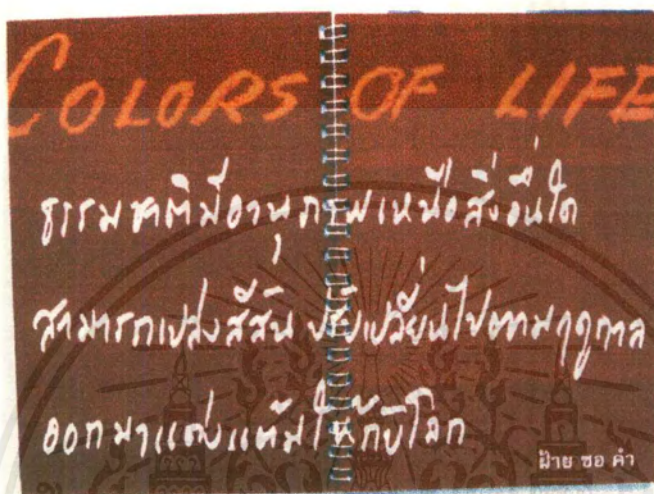 COLORS OF LIFE
ธรรมชาติมีอานุภาพเหนือสิ่งอื่นใด
สามารถเปล่งสีสัน ปรับเปลี่ยนไปตามฤดูกาล
ออกมาแต่งแต้มให้กับโลก
ฝ้าย ซอ คำ